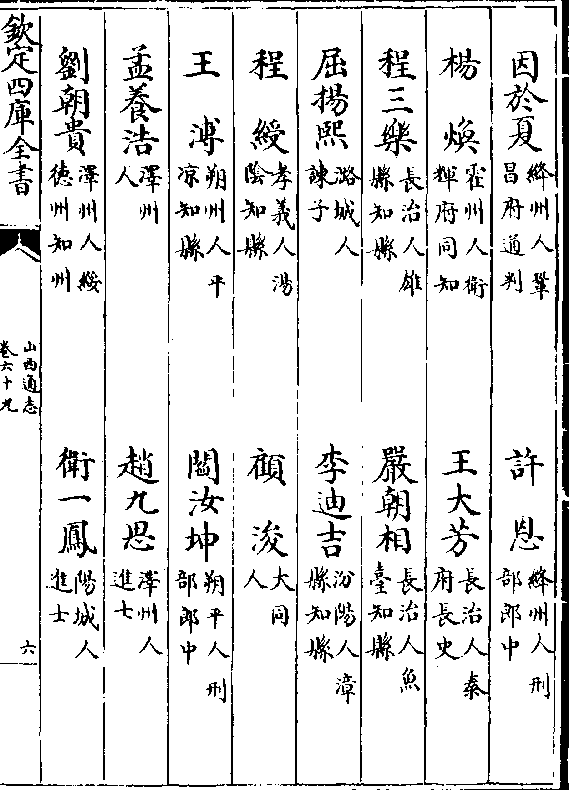 因於夏 絳州人鞏昌府通判 許恩 絳州人刑部郎中
楊煥 霍州人衛輝府同知 王大芳 長治人秦府長史
程三樂 長治人雄縣知縣 嚴朝相 長治人魚臺知縣
屈揚熙 潞城人諫子 李迪吉 汾陽人漳縣知縣
程綬 孝義人湯陰知縣 顧浚 大同人
王溥 朔州人平凉知縣 閻汝坤 朔平人刑部郎中
孟養浩 澤州人 趙九思 澤州人進士
劉朝貴 澤州人綏德州知州 衛一鳳 陽城人進士
欽定四庫全書
山西通志
卷六十九
六